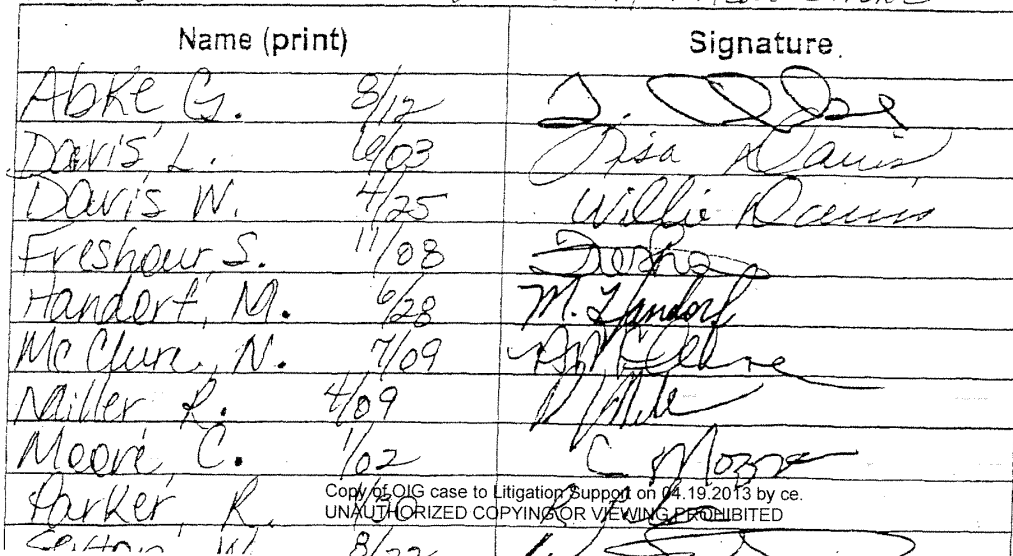 Name (print) Signature
Abke G. 8/12
Davis, L. 6/03 Lisa Davis
Davis W. 4/25 Willie Davis
Freshour S. 11/08
Handorf, M. 6/28 M. Handorf
McClure, N. 7/09 McClure
Miller R. 4/09 R Mile
Moore, C. 1/02 C Moore
Parker, R. /30
Copy of OIG case to Litigation Support on 04.19.2013 by ce.
UNAUTHORIZED COPYING OR VIEWING PROHIBITED
W. 8/22